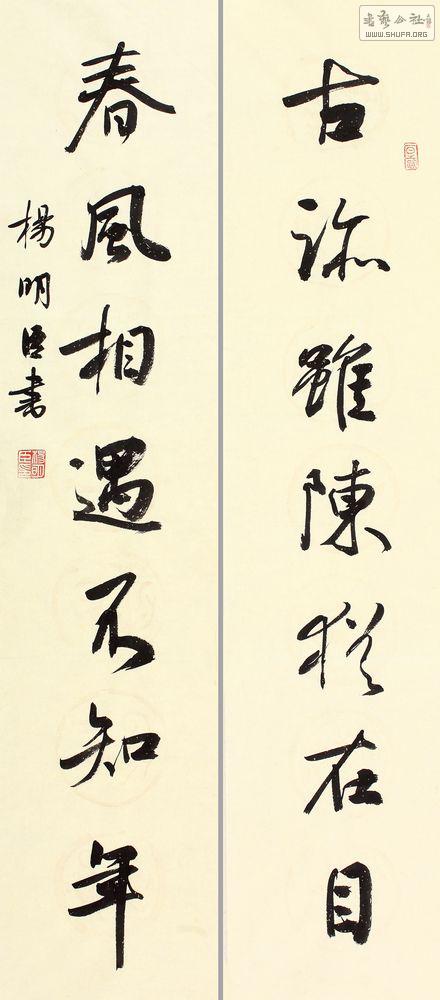 古跡雖陳猶在目
春風相遇不知年
楊明臣書
書藝公社
WWW.SHUFA.ORG